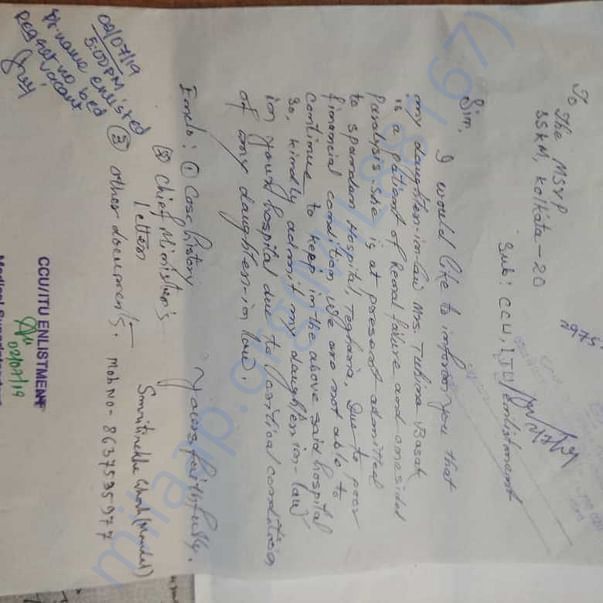 To
The MSVP
SSKM, Kolkata-20
Sub: CCU, ITU enlistment
Sir,
I would like to inform you that
my daughter-in-law Mrs. Tuhina Basak
is a patient of Renal failure and onesided
Paralysis. She is at present admitted
to spandan Hospital, Teghoria. Due to poor
financial condition we are not able to
continue to keep in the above said hospital
So, kindly admit my daughter-in-law
in your hospital due to critical condition
of my daughter-in law.
Yours faithfully,
Enclo: ① Case history
② Chief Minister's
letter
③ other documents.
(Mandal)
Mob No- 8637535977
02/07/19
5:00PM
Pt name enlisted
Regret no bed
vacant
CCU/ITU ENLISTMENT
02/07/19
2975